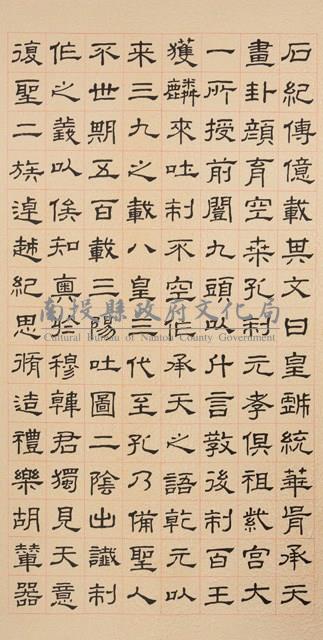 石紀傳億載其文曰皇戲統華胥承天
畫卦顏育空桒孔制元孝俱祖紫宮大
一所授前闓九頭以什言敎後制百王
獲麟來吐制不空作承天之語乾元以
来三九之載八皇三代至孔乃備聖人
不世期五百載三陽吐圖二陰出讖制
作之義以俟知奧於穆韓君獨見天意
復聖二族逴越紀思脩造禮樂胡輦器
南投縣政府文化局
Cultural Bureau of Nantou County Government